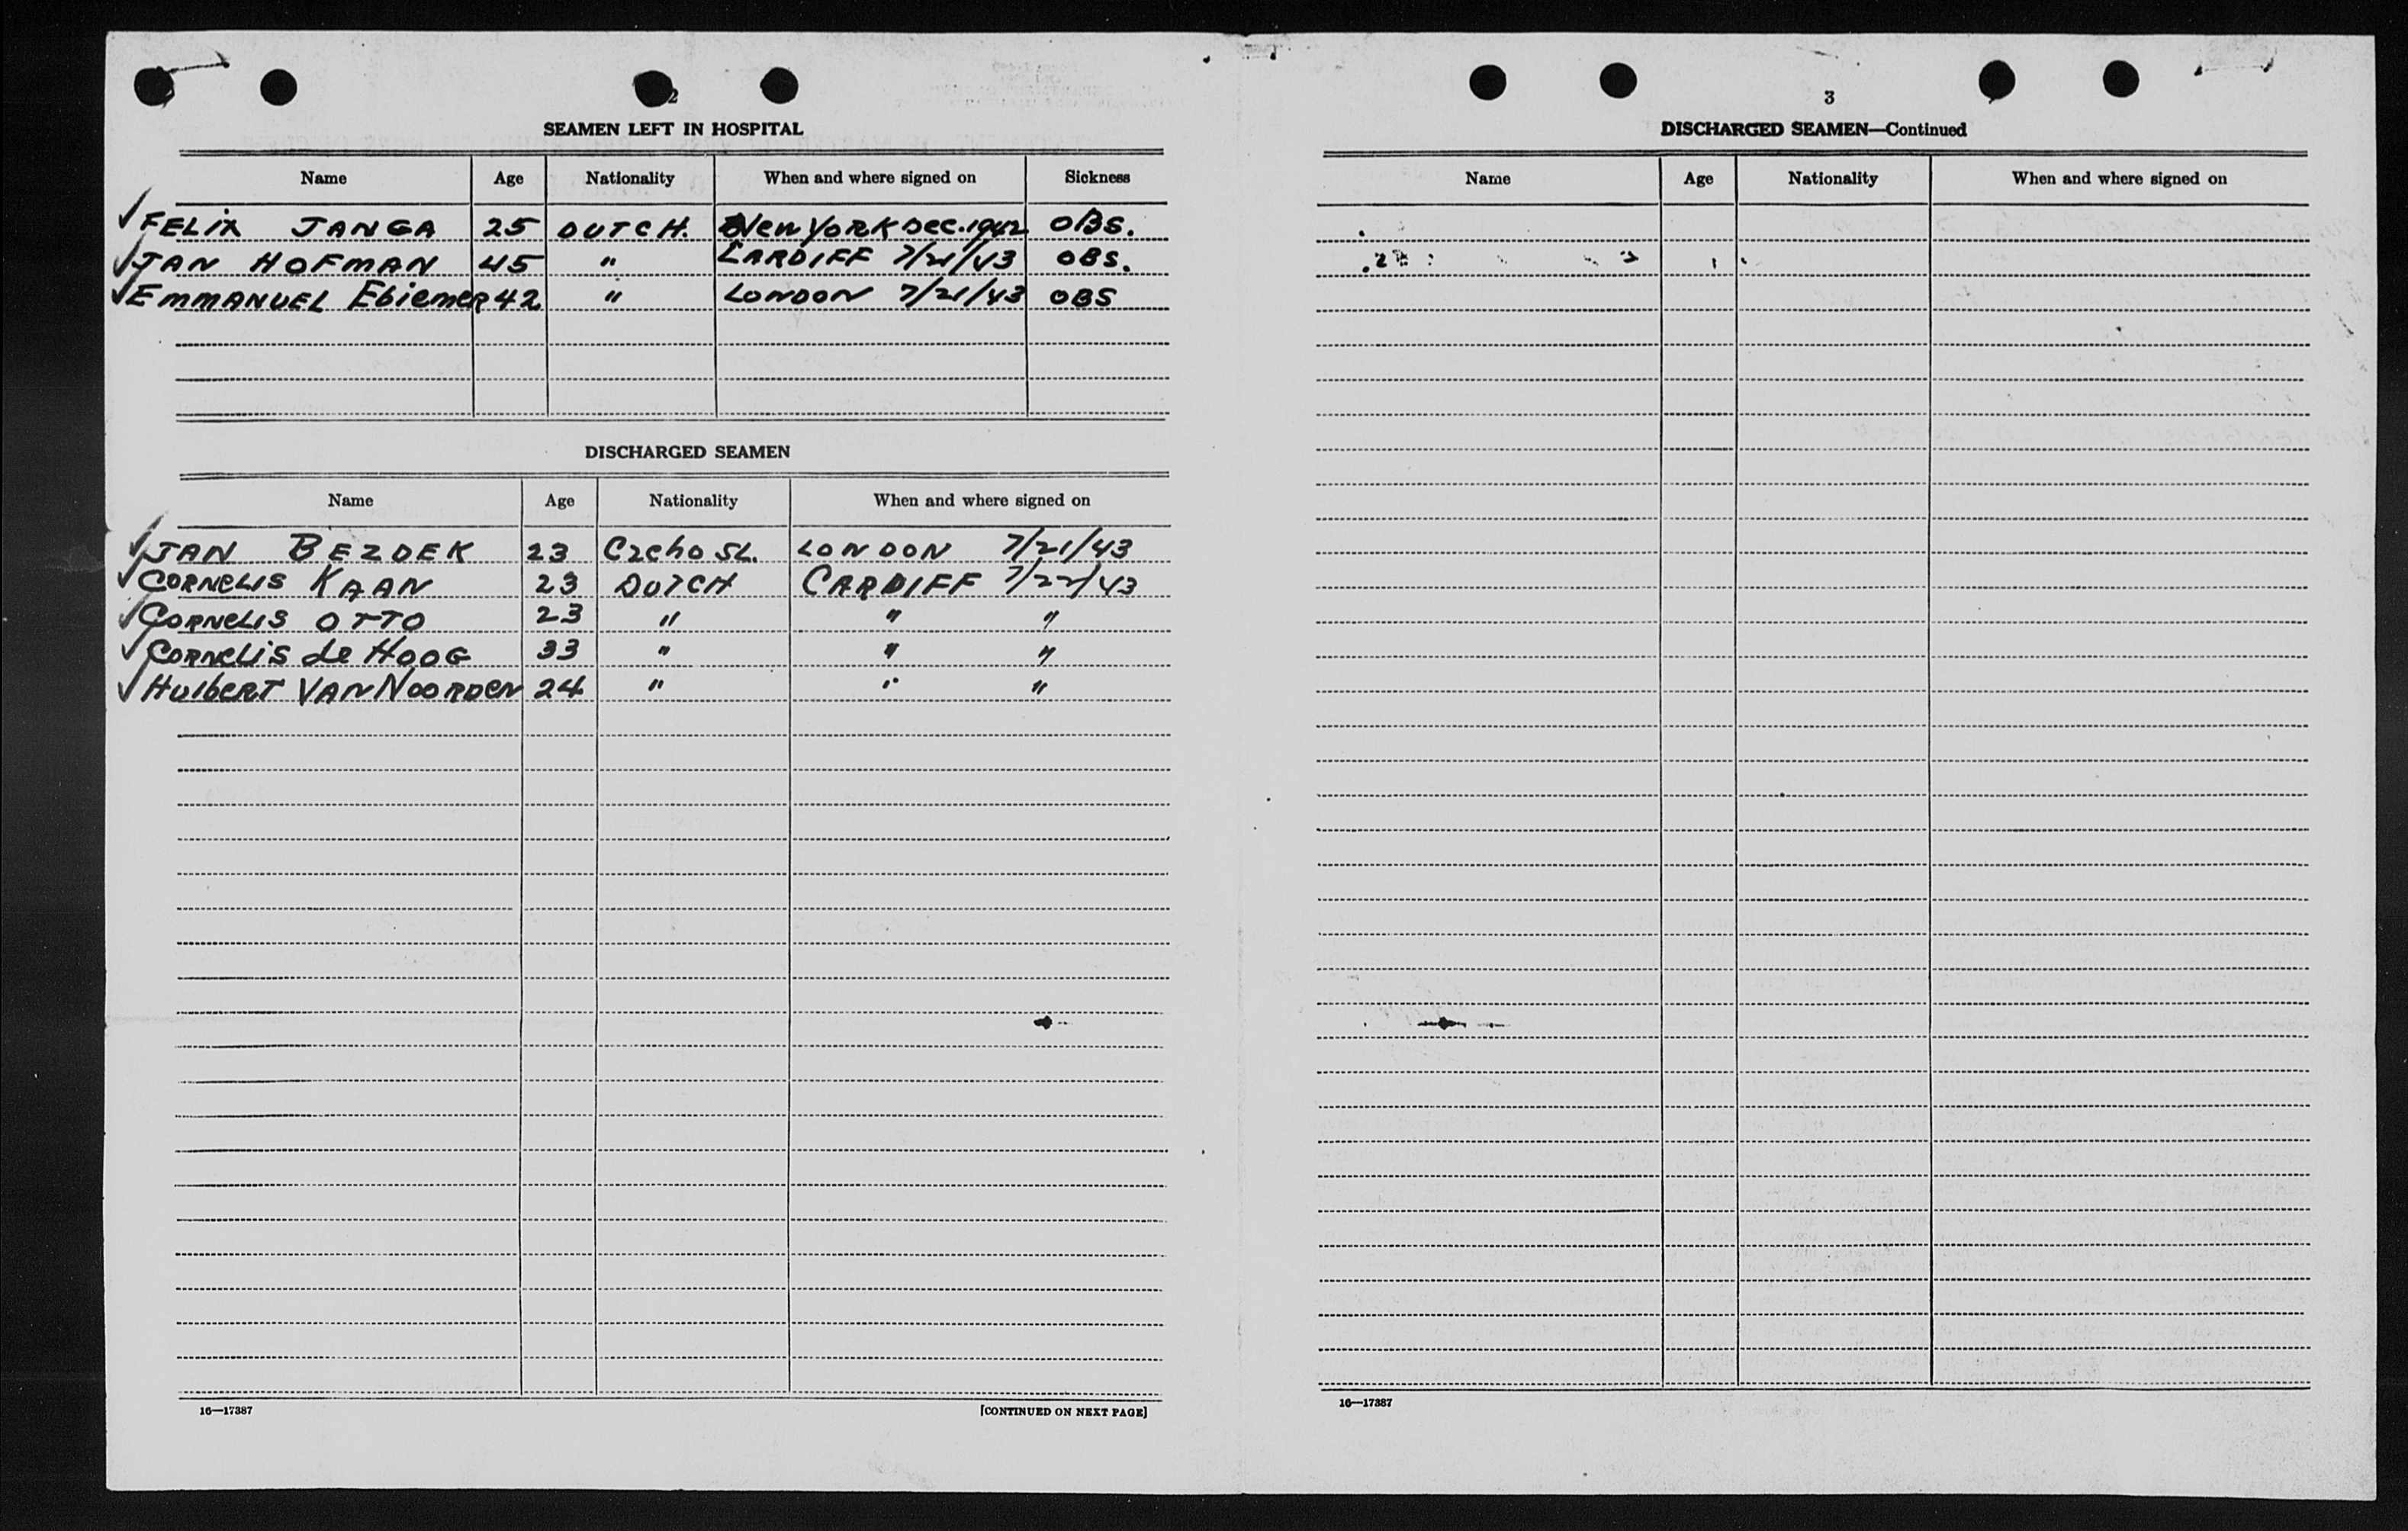 2
SEAMEN LEFT IN HOSPITAL
Name Age Nationality When and where signed on Sickness
✓ FELIX JANGA 25 DUTCH. New York Dec. 1942 OBS.
✓ JAN HOFMAN 45 " CARDIFF 7/21/43 OBS.
✓ EMMANUEL Ebiemer 42 " LONDON 7/21/43 OBS
DISCHARGED SEAMEN
Name Age Nationality When and where signed on
✓ JAN BEZDEK 23 Czcho SL. LONDON 7/21/43
✓ CORNELIS KAAN 23 DUTCH CARDIFF 7/22/43
✓ CORNELIS OTTO 23 " " "
✓ CORNELIS de HOOG 33 " " "
✓ HuibeRT VAN NOORDEN 24 " " "
16—17387 [CONTINUED ON NEXT PAGE]
3
DISCHARGED SEAMEN—Continued
Name Age Nationality When and where signed on
16—17387